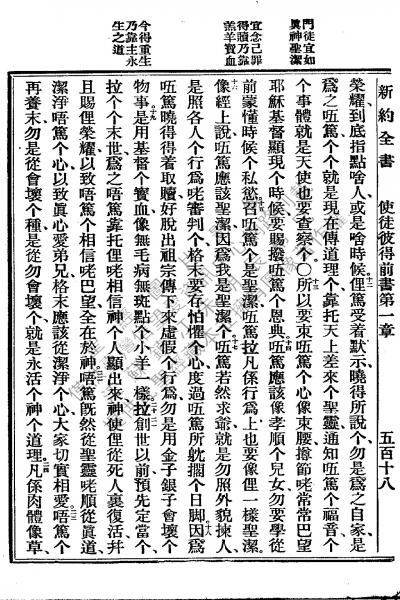 門徒宜如
眞神聖潔
宜念己罪
得贖乃靠
羔羊寶血
今得重生
乃靠主永
生之道
新約全書　使徒彼得前書第一章　五百十八
榮耀、到底指點啥人、或是啥時候。十二俚篤受着默示、曉得所說个、勿是爲之自家、是
爲之唔篤个、就是現在傳道理个、靠托天上差來个聖靈、通知唔篤个福音个
个事體、就是天使也要查察个、〇十三所以要束唔篤个心、像束腰、撙節咾常常巴望
耶穌基督顯現个時候、要賜撥唔篤个恩典、十四唔篤應該像孝順个兒女、勿要學從
前蒙懂時候个私慾、十五召唔篤个是聖潔个、唔篤拉凡係行爲上、也要像俚一樣聖潔、
十六像經上說、唔篤應該聖潔、因爲我是聖潔个、十七唔篤若然求爺、就是勿照外貌揀人、
是照各人个行爲咾審判个、格末要存怕懼个心、度過唔篤所躭擱个日脚、十八因爲
唔篤曉得得着取贖、好脫出祖宗傳下來虛假个行爲、勿是用金子銀子會壞个
物事、十九是用基督个寶血、像無毛病無斑點个小羊一樣、二十拉創世以前預先定當个、
拉个个末世、爲之唔篤靠托俚咾相信神个人顯出來、神使俚從死人裏復活、幷
且賜俚榮耀、以致唔篤个相信咾巴望、全在於神、唔篤旣然從聖靈咾順從眞道、
潔淨唔篤个心、以致眞心愛弟兄、格末應該從潔淨个心、大家切實相愛、唔篤个
再養、末勿是從會壞个種、是從勿會壞个、就是永活个神个道理、凡係肉體像草、